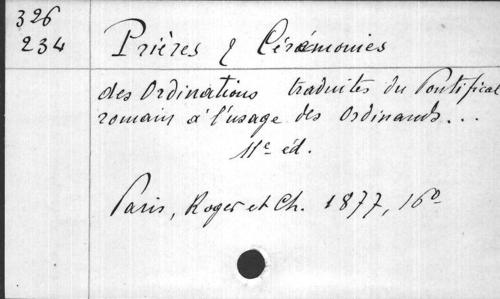 326
234
Prières & Cérémonies
des Ordinations traduites du Pontifical
romain à l'usage des Ordinands...
11e éd.
Paris, Roger et Ch. 1877, 16o